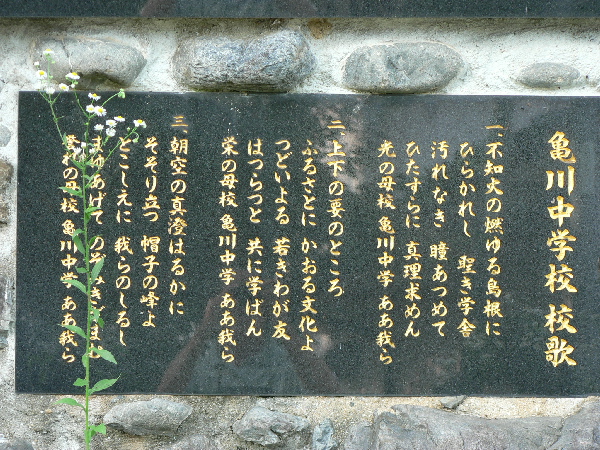 亀川中学校 校歌
一、不知火の燃ゆる島根に
ひらかれし 聖き学舎
汚れなき 瞳あつめて
ひたすらに 真理求めん
光の母校 亀川中学 ああ我ら
二、上下の要のところ
ふるさとに かおる文化よ
つどいよる 若きわが友
はつらつと 共に学ばん
栄の母校 亀川中学 ああ我ら
三、朝空の真澄はるかに
そそり立つ 帽子の峰よ
とこしえに 我らのしるし
あげて のぞみ
れの母校 亀川中学 ああ我ら